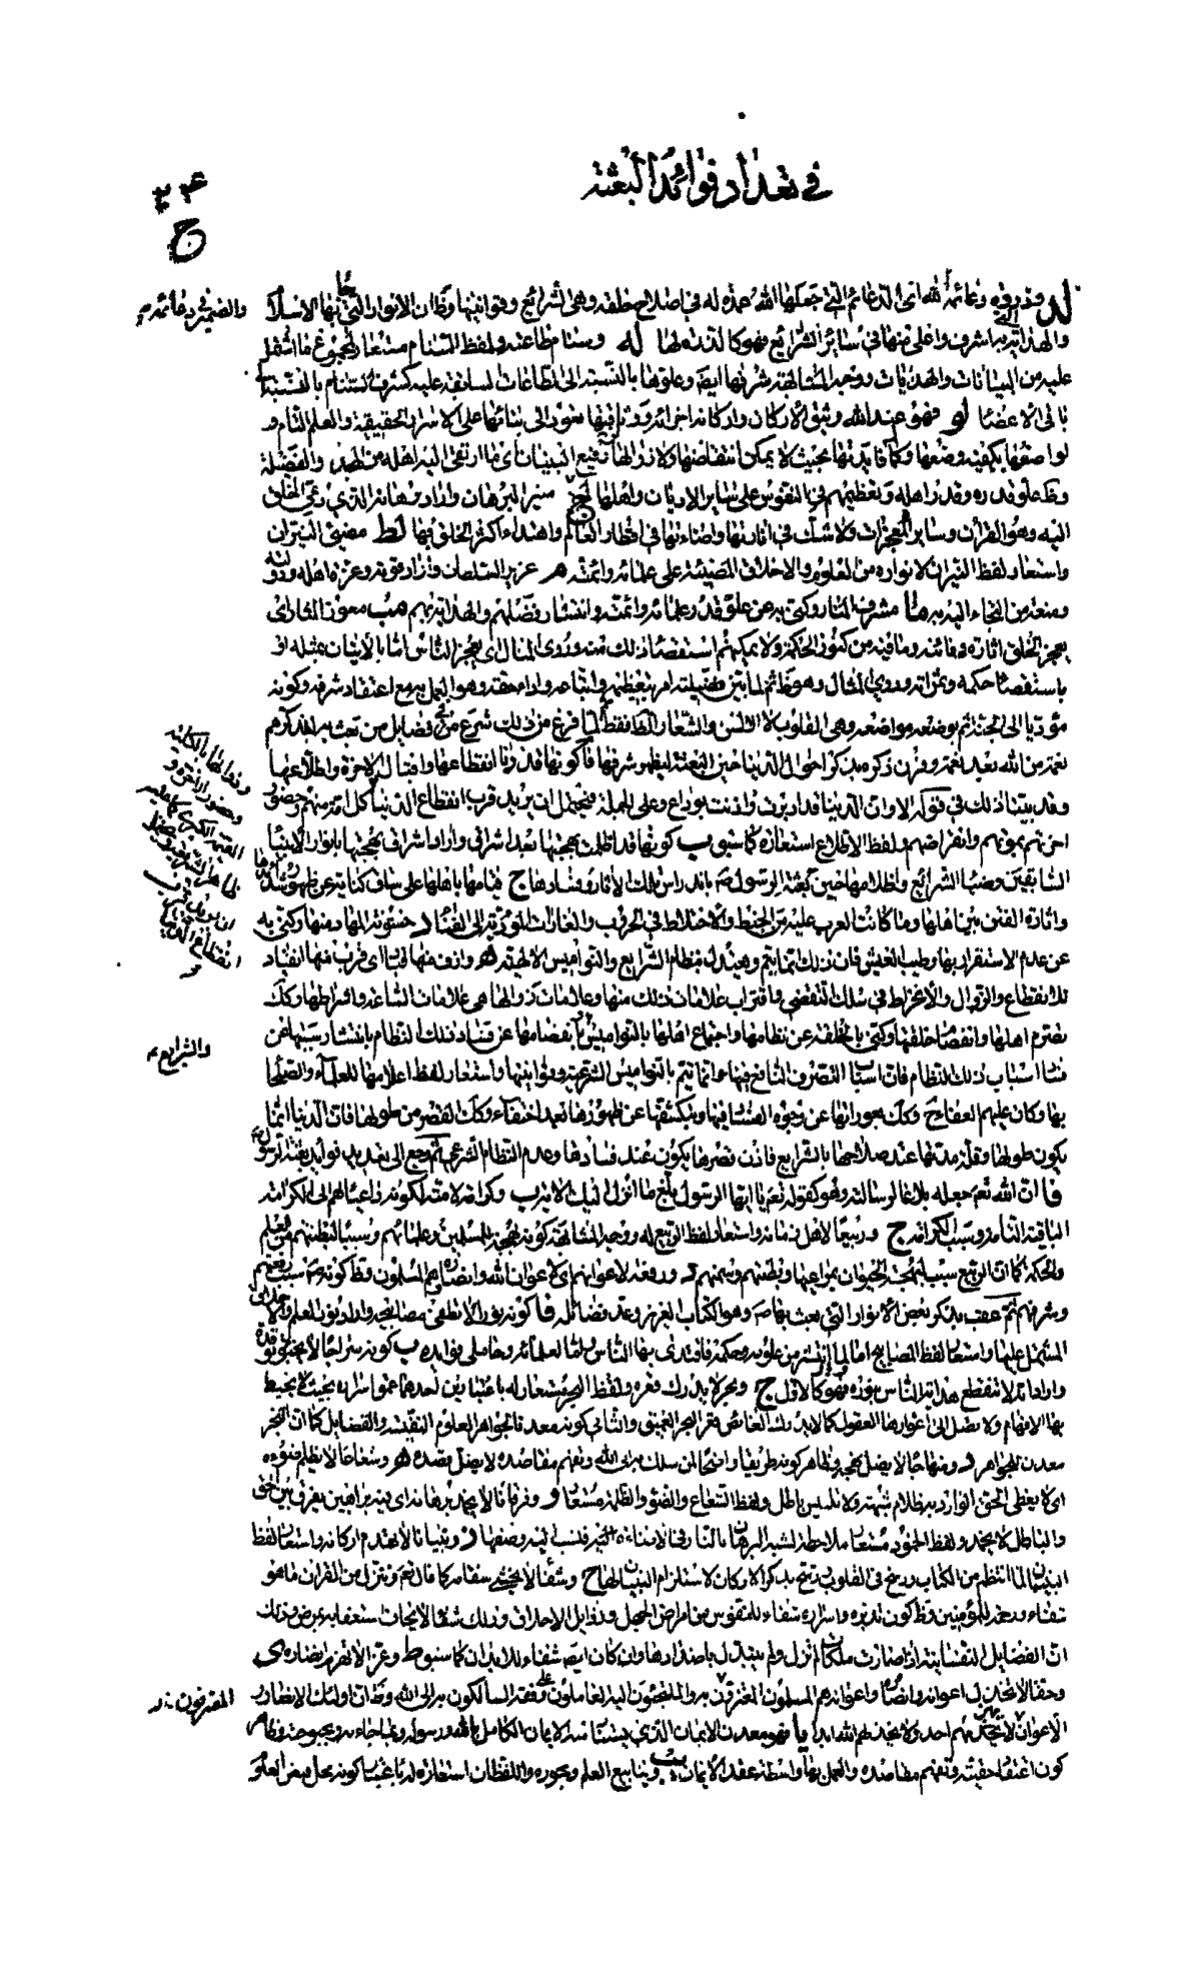 في تعداد فوائد البعثة
٢٣٤
ج
لد وذروة دعائمه لله اى الدعائم التي جعلها الله عمدة له في اصلاح خلقه وهى الشرائع وقوانينها وظ ان الانوار التي جاء بها الاسلام
والضمير في دعائمه م
والهداية به اشرف واعلى منها في سائر الشرائع فهو كالذروة لها له وسنام طاعته ولفظ السنام مستعار لمجموع ما اشتمل
عليه من البيانات والهدايات ووجه المشابهة شرفها ايضا وعلوها بالنسبة الى الطاعات السابقة عليه كشرف السنام بالنسبة
باقى الاعضا لو فهو عند الله وثيق الاركان واركانه اجزاؤه
لواضعها بكيفية وضعها وكمال فائدتها بحيث لا يمكن انتقاضها ولا زوالها رفيع البنيان اى ما ارتقى اليه اهله من
وظ علو قدره وقدر اهله وتعظيمهم في النفوس على سائر الاديان واهلها لح منير البرهان واراد برهانه الذي دعى الخلق
اليه وهو القرآن وساير المعجزات ولا شك في انارتها واضاءتها في اقطار العالم واهتداء اكثر الخلق بها لط مضئ النيران
واستعار لفظ النيران لانواره من العلوم والاخلاق المضيئة على علمائه وائمته م عزيز السلطان واراد قوته وعزة اهله ودولته
ومنعة من التجاء اليه به ما مشرف المنار وكنى به عن علو قدر علمائه وائمته وانتشار فضلهم والهداية بهم مب معوز المثار اى
يعجز الخلق اثارة دفائنه وما فيه من كنوز الحكمة ولا يمكنهم استقصاء ذلك منه وروى المنال اى يعجز الناس اما بالاتيان بمثله او
باستقصاء حكمه وثمراته وروى المثال وهو ظ ثم لما بين فضيلته امر بتعظيمه واتباعه واداء حقه وهو العمل به مع اعتقاد شرفه وكونه
مؤديا الى الجنة ثم بوضعه مواضعه وهى القلوب لا الالسن والشعار الظ فقط ثم لما فرغ من ذلك شرع في فضايل من بعث به ليذكرهم
نعمة من الله بعد نعمة وقرن ذكره بذكر احوال الدنيا حين البعثة ليظهر شرفها فا كونها قد دنا انقطاعها واقبال الاخرة واطلاعها
وقد بينا ذلك في قوله الا وان الدنيا قد ادبرت واذنت بوداع وعلى الجملة فيحتمل ان يريد قرب انقطاع الدنيا كل امة منهم وحضور
اخرتهم بموتهم وانقراضهم ولفظ الاطلاع استعارة كما سبق ب كونها قد اظلمت بهجتها بعد اشراق واراد اشراق بهجتها بانوار الانبيا
السابقين وضياء الشرائع واظلامها حين بعثة الرسول ص باندراس تلك الاثار وفسادها ج قيامها باهلها على ساق كناية عن ظهور شدائدها
واثارة الفتن بين اهلها وما كانت العرب عليه من الخبط والاختلاط في الحروب والغارات المؤدية الى الفناء د خشونة المهاد منها وكنى به
عن عدم الاستقرار بها وطيب العيش فان ذلك انما يتم ويعتدل بنظام الشرايع والنواميس الالهية ه وازف منها قياد اى قرب منها انقياد
للانقطاع والزوال والانخراط في سلك التقضى واقتراب علامات ذلك منها وعلامات زوالها هى علامات الساعة واشراطها وكك
تصرم اهلها وانفصام حلقتها وكنى بالحلقة عن نظامها واجتماع اهلها بالنواميس والشرايع وبانفصامها عن فساد ذلك النظام بانتشار سببها عن
والشرايع م
فساد اسباب ذلك النظام فان اسباب التصرف النافع فيها وانما تتم بالنواميس الشرعية وقوانينها واستعار لفظ اعلامها للعلماء والصلحاء
بها وكان عليهم العفاء ح وكك بعوراتها عن وجوه الفساد فيها وبتكشفها عن ظهورها بعد اختفاء وكك القصر من طولها فان الدنيا انما
يكون طولها وقلة مدتها عند صلاحها بالشرايع فاذن قصرها يكون عند فسادها وعدم النظام الشرعى ثم رجع الى تعديد فوايد بعثة الرسول ص
فا ان الله تعم جعله بلاغا لرسالته وهو كقوله تعم يا ايها الرسول بلغ ما انزل اليك الاية ب وكرامة لامته لكونه داعيا لهم الى الكرامة
الباقية التامة وسبب الكرامة ج وربيعا لاهل زمانه واستعار لفظ الربيع له ووجه المشابهة كونه بهجة للمسلمين وعلمائهم وسببا لبطنتهم من العلم
والحكمة كما ان الربيع سبب لبهجة الحيوان بمراعيها وبطنتهم وسمنهم د ورفعة لاعوانه اى لاعوان الله وانصاره وهم المسلمون وظ كونه ص سبب رفعتهم
وشرفهم ثم عقب بذكر بعض الانوار التي بعث بها ص وهو الكتاب العزيز وعد فضائله فا كونه نورا لا تطفى مصابيحه واراد نور العلم
المشتمل عليها واستعار لفظ المصابيح اما لما انتشر من علومه وحكمه فاقتدى بها الناس واما لعلمائه وحاملى فوايده ب كونه سراجا لا يخبو توقده
واراد انه لا تنقطع هداية الناس بنوره فهو كالاول ج وبحرا لا يدرك قعره ولفظ البحر مستعار له باعتبارين احدهما عمق اسراره بحيث لا يحيط
بها الافهام ولا تصل الى اغوارها العقول كما لا يدرك الغائص قعر البحر العميق والثانى كونه معدنا لجواهر العلوم النفيسة والفضايل كما ان البحر
معدن للجواهر د ومنهاجا لا يضل نهجه وظاهر كونه طريقا واضحا لمن سلك به الى الله وتفهم مقاصده لا يضل قصده ه وشعاعا لا يظلم ضوءه
اى لا يغطى الحق الوارد به ظلام شبهة ولا تلبيس باطل ولفظ الشعاع والضوء والظلمة مستعار و وفرقانا لا يخمد برهانه اى فيه براهين يفرق بين الحق
والباطل لا يخمد ولفظ الخمود مستعار ملاحظة لشبه البرهان بالنار في الاضاءة فنسب اليه وصفها ز وبنيانا لا تهدم اركانه واستعار لفظ
البنيان لما انتظم من الكتاب ورسخ في القلوب ورشح بذكر الاركان لاستلزام البنيان لها ح وشفاء لا يخشى سقامه كما قال تعم وننزل من القران ما هو
شفاء ورحمة للمؤمنين وظ كون تدبره واسراره شفاء للنفوس من امراض الجهل ورذايل الاخلاق وذلك شفاء لا يخاف استعقابه بمرض وذلك
ان الفضايل النفسانية اذا صارت ملكات لم تزل ولم يتبدل باضدادها وان كان ايضا شفاء للابدان كما سبق ط وعزا لا تهزم انصاره ى
وحقا لا تخذل اعوانه وانصاره واعوانه هم المسلمون المعترفون به والملتجئون اليه العاملون على وفقه السالكون به الى الله وظ ان اولئك الانصار
المعترفون به
الاعوان لا يهزمهم احد ولا يخذلهم الله ابدا يا فهو معدن الايمان الذي يستثار منه الايمان الكامل بالله ورسوله وبما جاء به وبحبوحته وظاهر
كون اعتقاد حقيته وتفهم مقاصده والعمل بها واسطة عقد الايمان يب وينابيع العلم وبحوره واللفظان استعارة له باعتبار كونه محل فيض العلوم